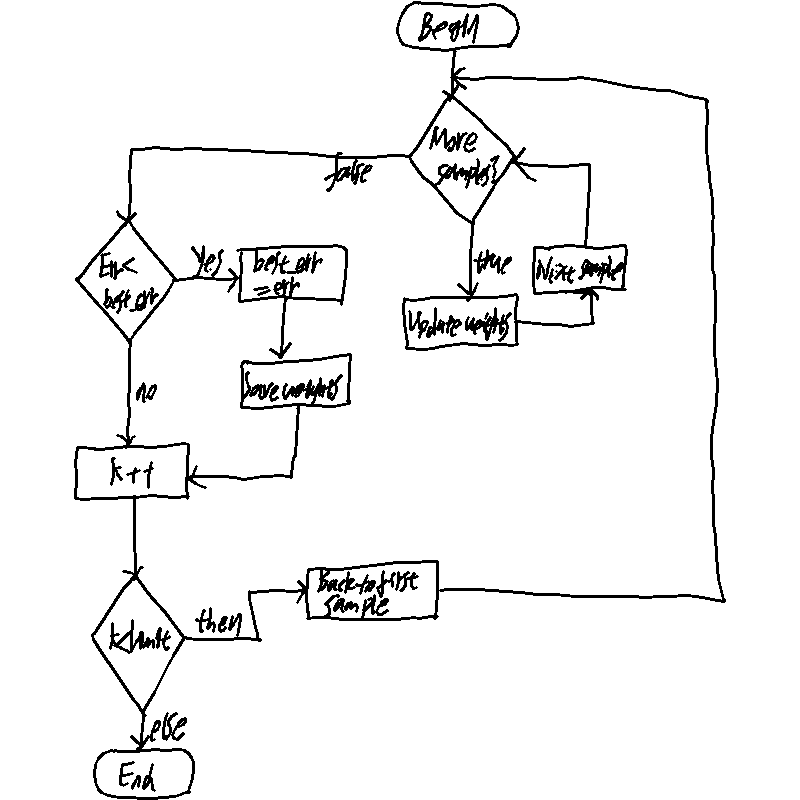 Begin
More
samples?
false
true
Next sample
Update weights
Err<
best_err
Yes
best_err
=err
Save weights
no
k++
k<limit
then
Back to first
sample
else
End